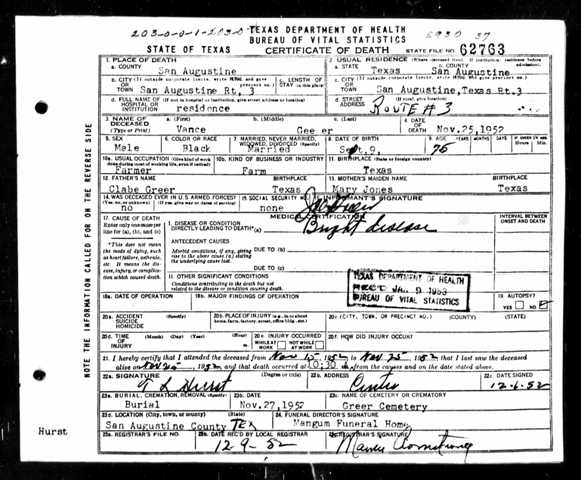 203-0-0-1-2030
TEXAS DEPARTMENT OF HEALTH
BUREAU OF VITAL STATISTICS
STATE OF TEXAS
CERTIFICATE OF DEATH
STATE FILE NO. 62763
1. PLACE OF DEATH
a. COUNTY
San Augustine
2. USUAL RESIDENCE (Where deceased lived. If institution: residence before admission).
a. STATE
Texas
b. COUNTY
San Augustine
b. CITY (If outside corporate limits, write RURAL and give precinct no.)
OR
TOWN
San Augustine Rt. 3
c. LENGTH OF STAY (in this place)
c. CITY (If outside corporate limits, write RURAL and give precinct no.)
OR
TOWN
San Augustine,Texas Rt.3
d. FULL NAME OF (If not in hospital or institution, give street address or location)
HOSPITAL OR
INSTITUTION
residence
d. STREET ADDRESS (If rural, give location)
Route # 3
3. NAME OF DECEASED
(Type or Print)
a. (First)
Vance
b. (Middle)
c. (Last)
4. DATE OF DEATH
Nov.25,1952
5. SEX
Male
6. COLOR OR RACE
Black
7. MARRIED, NEVER MARRIED, WIDOWED, DIVORCED (Specify)
Married
8. DATE OF BIRTH
9. AGE YEARS MONTHS DAYS
76
10a. USUAL OCCUPATION (Give kind of work done during most of working life, even if retired)
Farmer
10b. KIND OF BUSINESS OR INDUSTRY
Farm
11. BIRTHPLACE (State or foreign country)
Texas
12. FATHER'S NAME
Clabe Greer
BIRTHPLACE
Texas
13. MOTHER'S MAIDEN NAME
Mary Jones
BIRTHPLACE
Texas
14. WAS DECEASED EVER IN U.S. ARMED FORCES?
(Yes, no, or unknown) (If yes, give war or dates of service)
no
15. SOCIAL SECURITY NO.
none
INFORMANT'S SIGNATURE
MEDICAL CERTIFICATION
17. CAUSE OF DEATH
Enter only one cause per line for (a), (b), and (c)
*This does not mean the mode of dying, such as heart failure, asthenia, etc. It means the disease, injury, or complication which caused death.
I. DISEASE OR CONDITION
DIRECTLY LEADING TO DEATH*(a)
Bright disease
INTERVAL BETWEEN ONSET AND DEATH
ANTECEDENT CAUSES
Morbid conditions, if any, giving rise to the above cause (a) stating the underlying cause last.
DUE TO (b)
DUE TO (c)
II. OTHER SIGNIFICANT CONDITIONS
Conditions contributing to the death but not related to the disease or condition causing death.
TEXAS DEPARTMENT OF HEALTH
REC'D JAN 9 1953
BUREAU OF VITAL STATISTICS
18a. DATE OF OPERATION
18b. MAJOR FINDINGS OF OPERATION
19. AUTOPSY?
YES NO
20a. ACCIDENT
SUICIDE
HOMICIDE
(Specify)
20b. PLACE OF INJURY (e.g., in or about home, farm, factory, street, office bldg., etc.)
20c. (CITY, TOWN, OR PRECINCT NO.) (COUNTY) (STATE)
20d. TIME OF INJURY (Month) (Day) (Year) (Hour)
20e. INJURY OCCURRED
WHILE AT WORK NOT WHILE AT WORK
20f. HOW DID INJURY OCCUR?
21. I hereby certify that I attended the deceased from Nov 15 1952 to Nov 25 1952 that I last saw the deceased
alive on 1952 and that death occurred at 10:30 from the causes and on the date stated above.
22a. SIGNATURE
T L Hurst
(Degree or title)
22b. ADDRESS
Center
22c. DATE SIGNED
12-6-52
23a. BURIAL, CREMATION, REMOVAL (Specify)
Burial
23b. DATE
Nov.27,1952
23c. NAME OF CEMETERY OR CREMATORY
Greer Cemetery
23d. LOCATION (City, town, or county) (State)
San Augustine County Tex
24. FUNERAL DIRECTOR'S SIGNATURE
Mangum Funeral Home
25a. REGISTRAR'S FILE NO.
25b. DATE REC'D BY LOCAL REGISTRAR
12-9-52
25c. REGISTRAR'S SIGNATURE
Armstrong
Hurst
NOTE THE INFORMATION CALLED FOR ON THE REVERSE SIDE